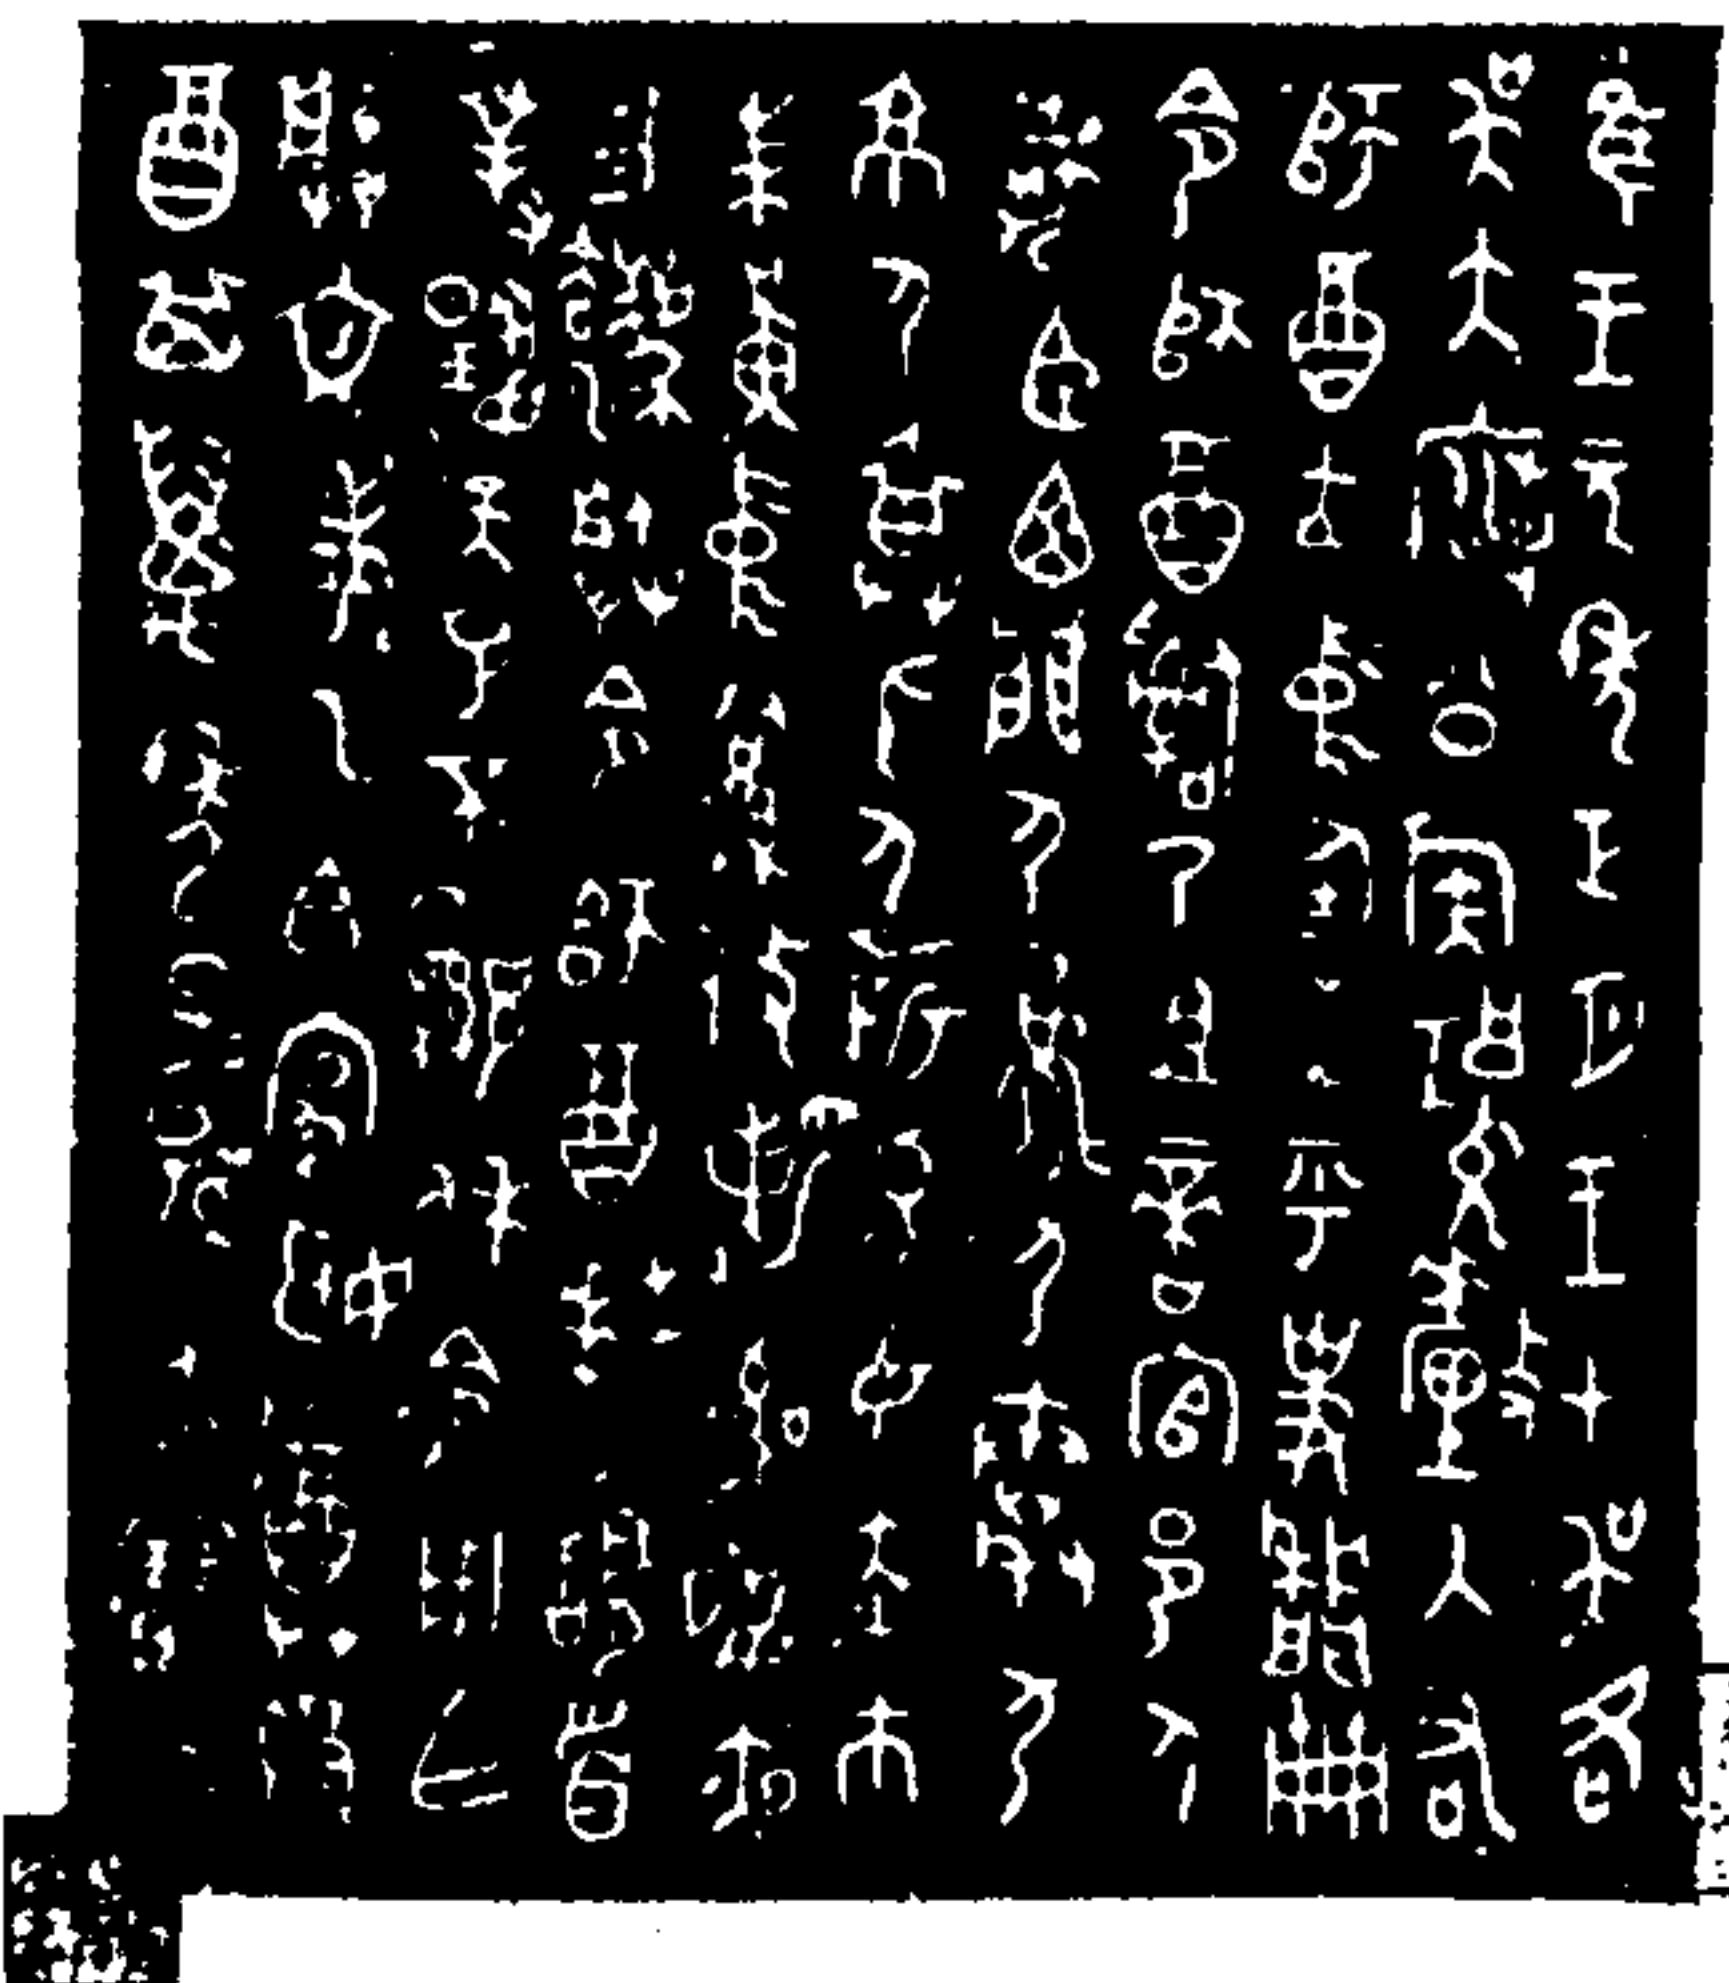 隹王元年正月王才吴各
吴大廟公族𩁹釐入右
師酉立中廷王乎史墻册
命師酉𤔲乃且啻官邑人
虎臣西門尸𡩜尸秦尸
京尸畀身尸新易女赤巿
朱黄中絅攸勒敬夙夜
勿灋朕令師酉拜𩒨首
對揚天子不顯休令用乍
朕文考乙白宄姬𬯚𣪘
酉其萬年子子孫孫永寶用